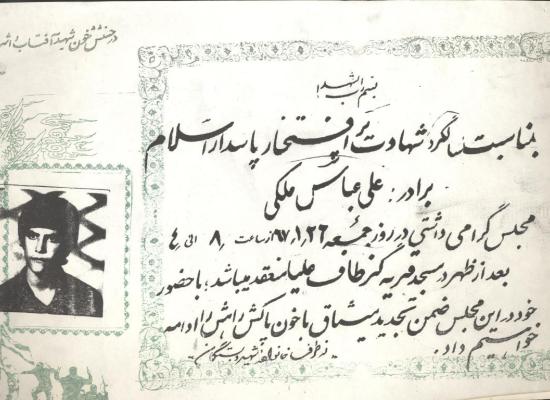 در جنبش خون شهید آفتاب را
بسم رب الشهدا
بمناسبت سالگرد شهادت پر افتخار پاسدار اسلام
برادر: علی عباس ملکی
مجلس گرامی داشتی در روز جمعه ۶۷،۱،۲۶ از ساعت ۸ الی ۴
بعد از ظهر در مسجد قریه گنر طاف علیا منعقد میباشد؛ با حضور
خود در این مجلس ضمن تجدید میثاق با خون پاکش راهش را ادامه
خواهیم داد.
از طرف خانواده شهید و بستگان